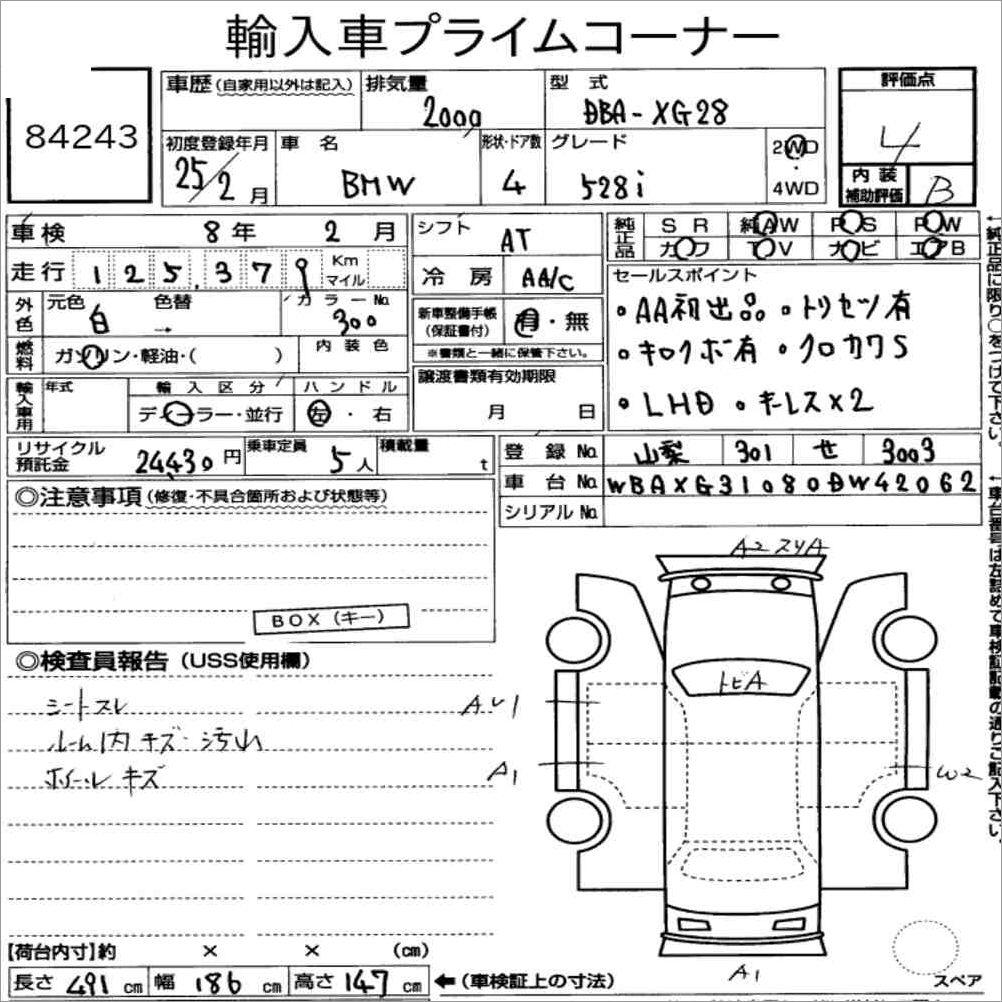 輸入車プライムコーナー
84243
車歴(自家用以外は記入)
排気量
2000
型式
DBA-XG28
評価点
4
初度登録年月
25/2月
車名
BMW
形状・ドア数
4
グレード
528i
2WD
・
4WD
内装
補助評価
B
車検 8年 2月
走行 125,379 Km
マイル
シフト
AT
冷房 AA/C
純正品
SR 純AW PS PW
カワ TV ナビ エアB
外色
元色 白
色替 →
カラーNo.
300
新車整備手帳
(保証書付)
有・無
※書類と一緒に保管下さい。
セールスポイント
・AA初出品 ・トリセツ有
・キロクボ有 ・クロカワS
・LHD ・キーレスX2
燃料
ガソリン・軽油・( )
内装色
輸入車用
年式
輸入区分
ディーラー・並行
ハンドル
左・右
譲渡書類有効期限
月 日
リサイクル
預託金
24430円
乗車定員
5人
積載量
t
登録No. 山梨 301 せ 3003
車台No. WBAXG31080DW42062
シリアルNo.
◎注意事項(修復・不具合箇所および状態等)
BOX(キー)
◎検査員報告(USS使用欄)
シートスレ
ルーム内キズ・汚れ
ホイールキズ
A2 スリA
トビA
AU1
A1
W2
A1
スペア
【荷台内寸】約 × × (cm)
長さ 491 cm 幅 186 cm 高さ 147 cm ←(車検証上の寸法)
←純正品に限り○をつけて下さい。
←車台番号は左詰めで車検証記載の通りご記入下さい。